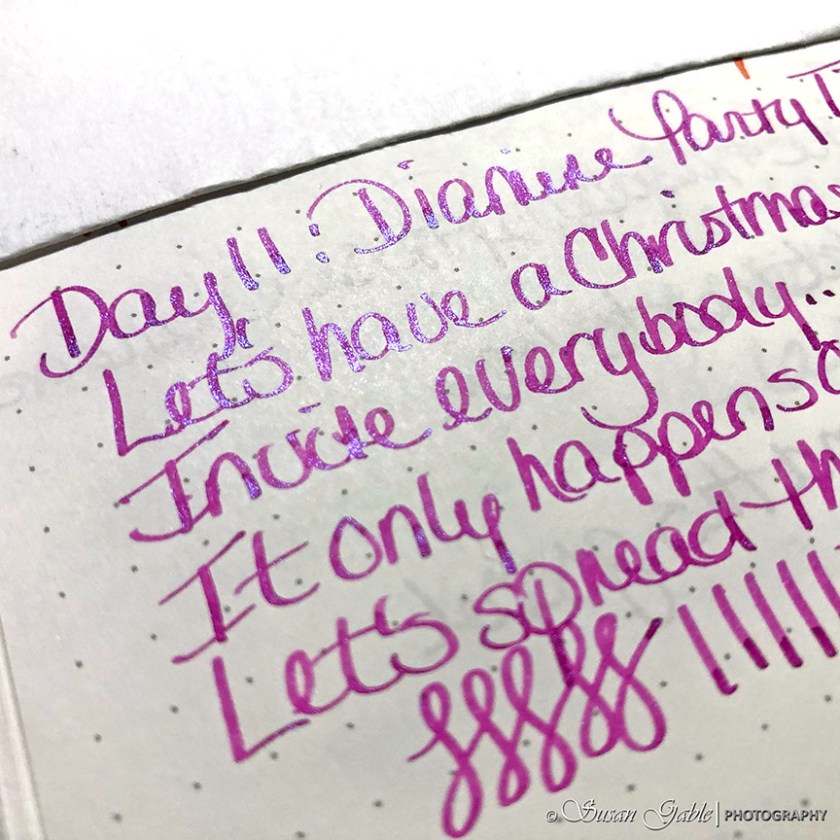 Day 11: Diamine Party T
Let's have a Christmas
Invite everybody...
It only happens o
Let's spread th
© Susan Gable | PHOTOGRAPHY